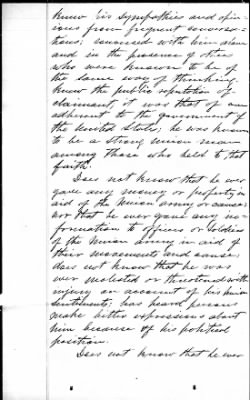 knew his sympathies and opin-
ions from frequent conversa-
tions; conversed with him alone
and in the presence of others
who were known to be of
the same way of thinking.
Knew the public reputation of
claimant, it was that of an
adherent to the government of
the United States; he was known
to be a strong Union man
among those who held to that
faith.
Does not know that he ever
gave any money or property in
aid of the Union army or cause;
nor that he ever gave any in-
formation to officers or soldiers
of the Union army in aid of
their movements and causes
does not know that he was
ever molested or threatened with
injury on account of his Union
sentiments; has heard persons
make bitter expressions about
him because of his political
position.
Does not know that he ever